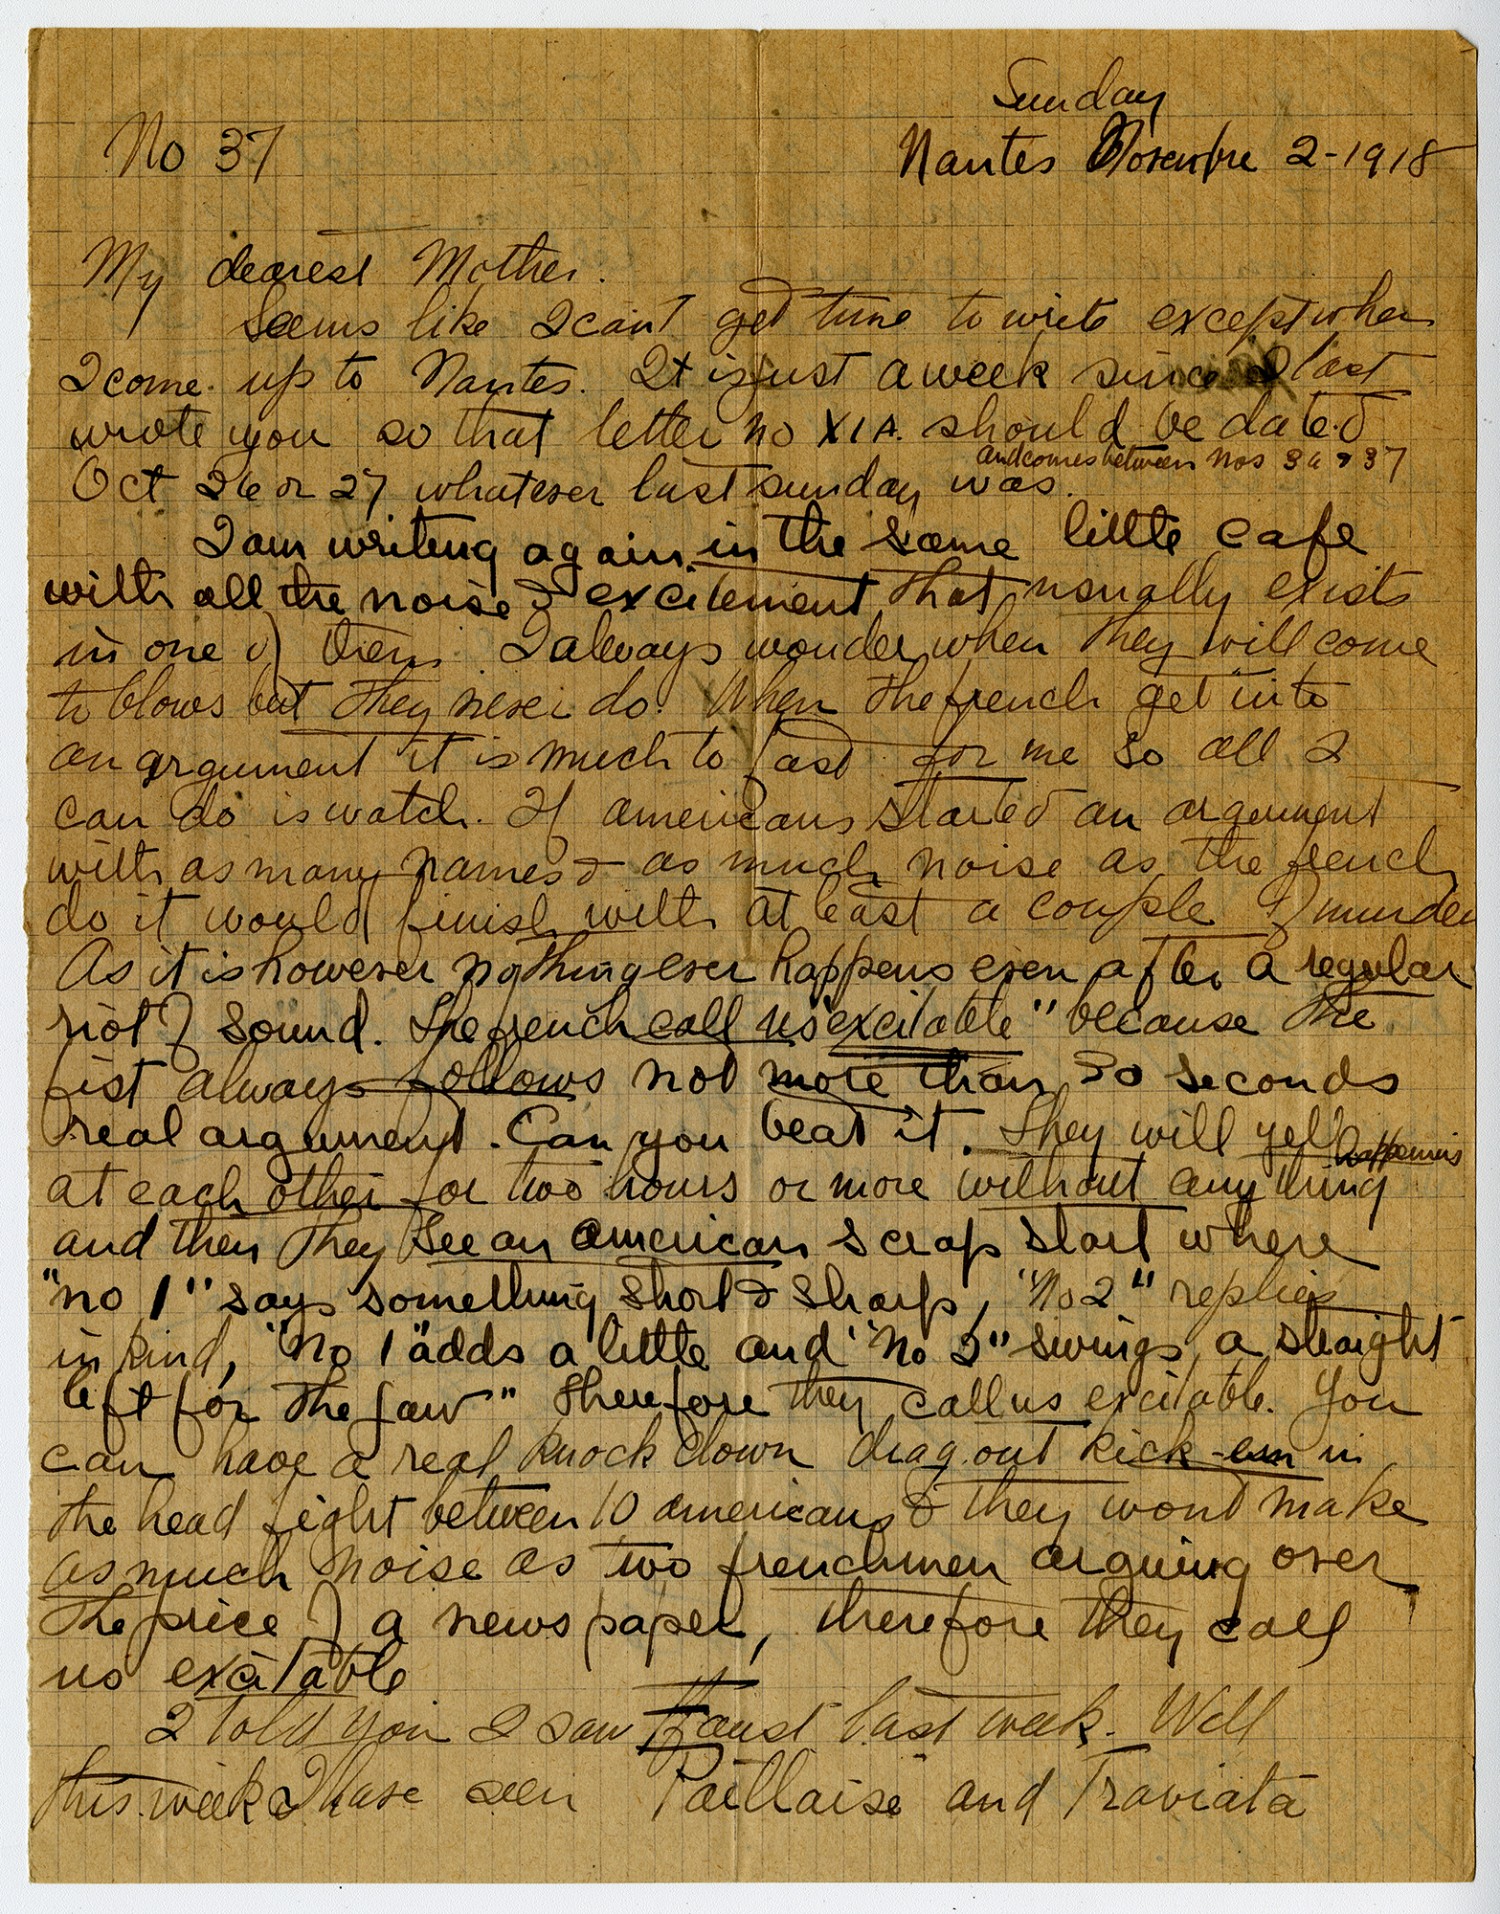 Sunday
No 37
Nantes Novembre 2-1918
My dearest Mother.
Seems like I can't get time to write except when
I come up to Nantes. It is just a week since I last
wrote you so that letter no XIA. should be dated
and comes between nos 36 & 37
Oct 26 or 27 whatever last sunday was.
I am writing again in the same little cafe
with all the noise & excitement that usually exists
in one of them. I always wonder when they will come
to blows but they never do. When the french get into
an argument it is much to fast for me so all I
can do is watch. If americans started an argument
with as many names & as much noise as the french
do it would finish with at least a couple of murders
As it is however nothing ever happens even after a regular
riot of sound. The french call us "excitable" because the
fist always follows not more than 30 seconds
real argument. Can you beat it. They will yell
happening
at each other for two hours or more without anything
and then they see an american scrap start where
"no 1" says something short & sharp, "No 2" replies
in kind, "no 1" adds a little and "no 2" swings a straight
left for the jaw" therefore they call us excitable. You
can have a real knock down drag out kick-em in
the head fight between 10 americans & they wont make
as much noise as two frenchmen arguing over
the price of a newspaper, therefore they call
us excitable
I told you I saw Faust last week. Well
this week I have seen Paillaise and Traviata